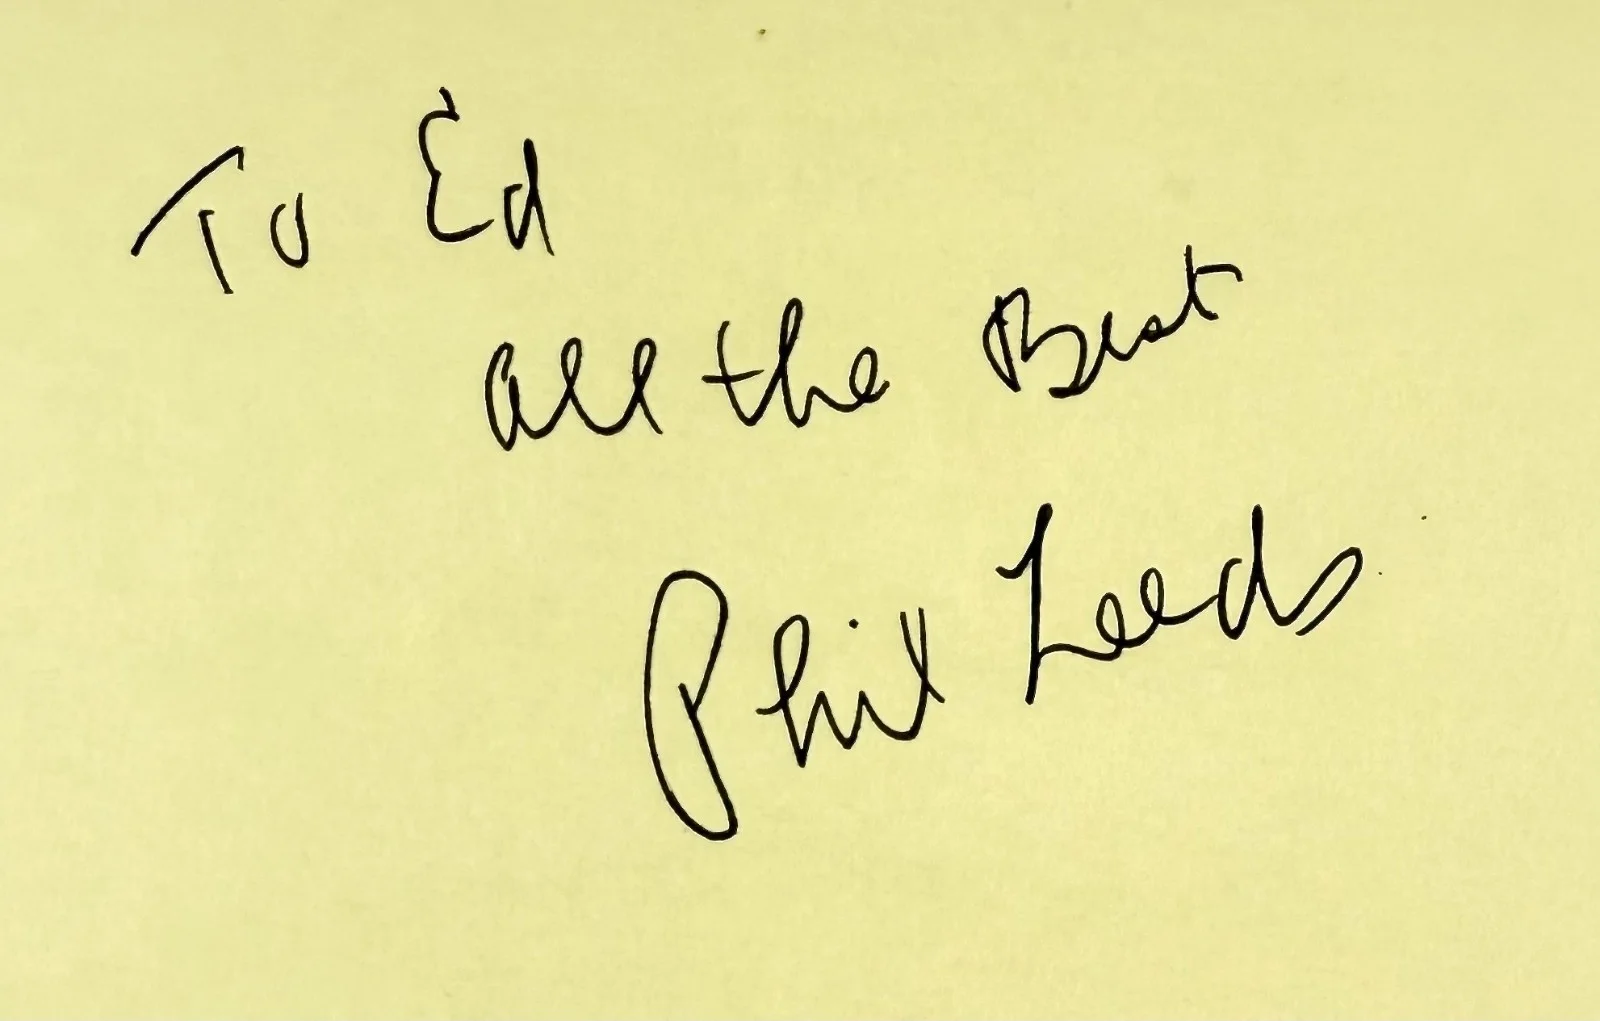 To Ed
all the Best
Phil Leeds